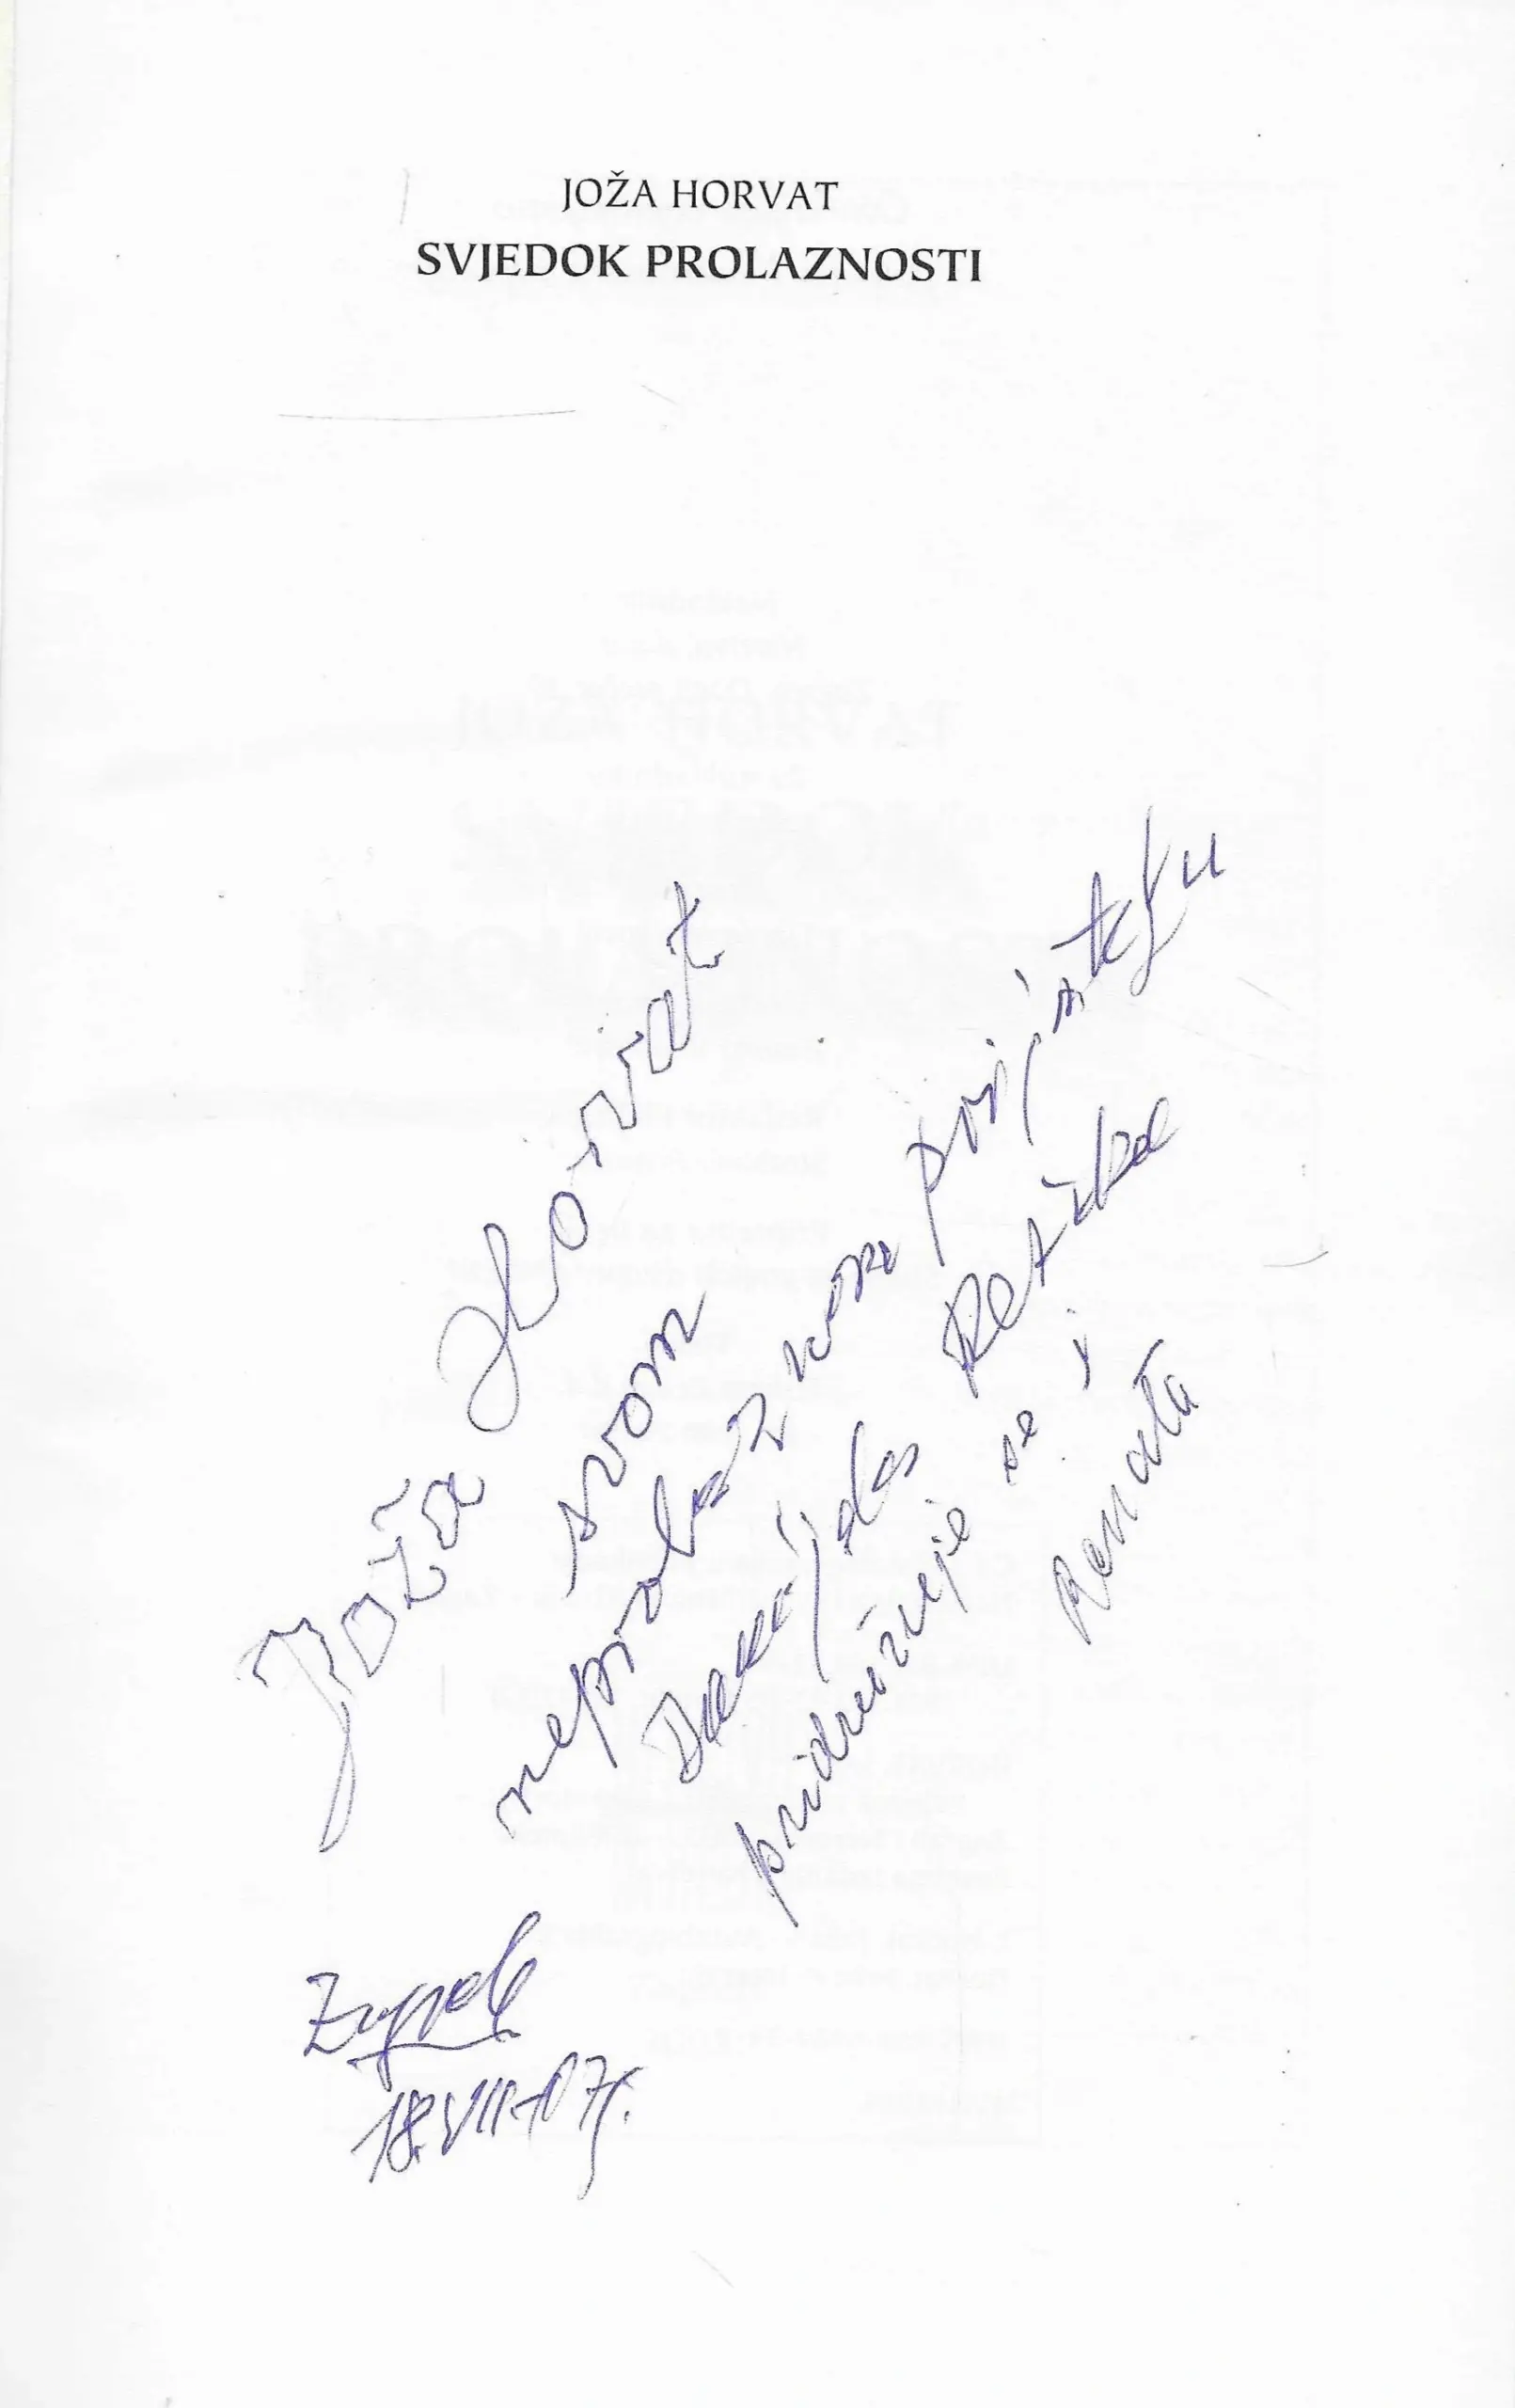 JOŽA HORVAT
SVJEDOK PROLAZNOSTI
Joža Horvat
svom
neprolaznom prijatelju
pridružuje se i
Renata
Zagreb
18.VII.07.